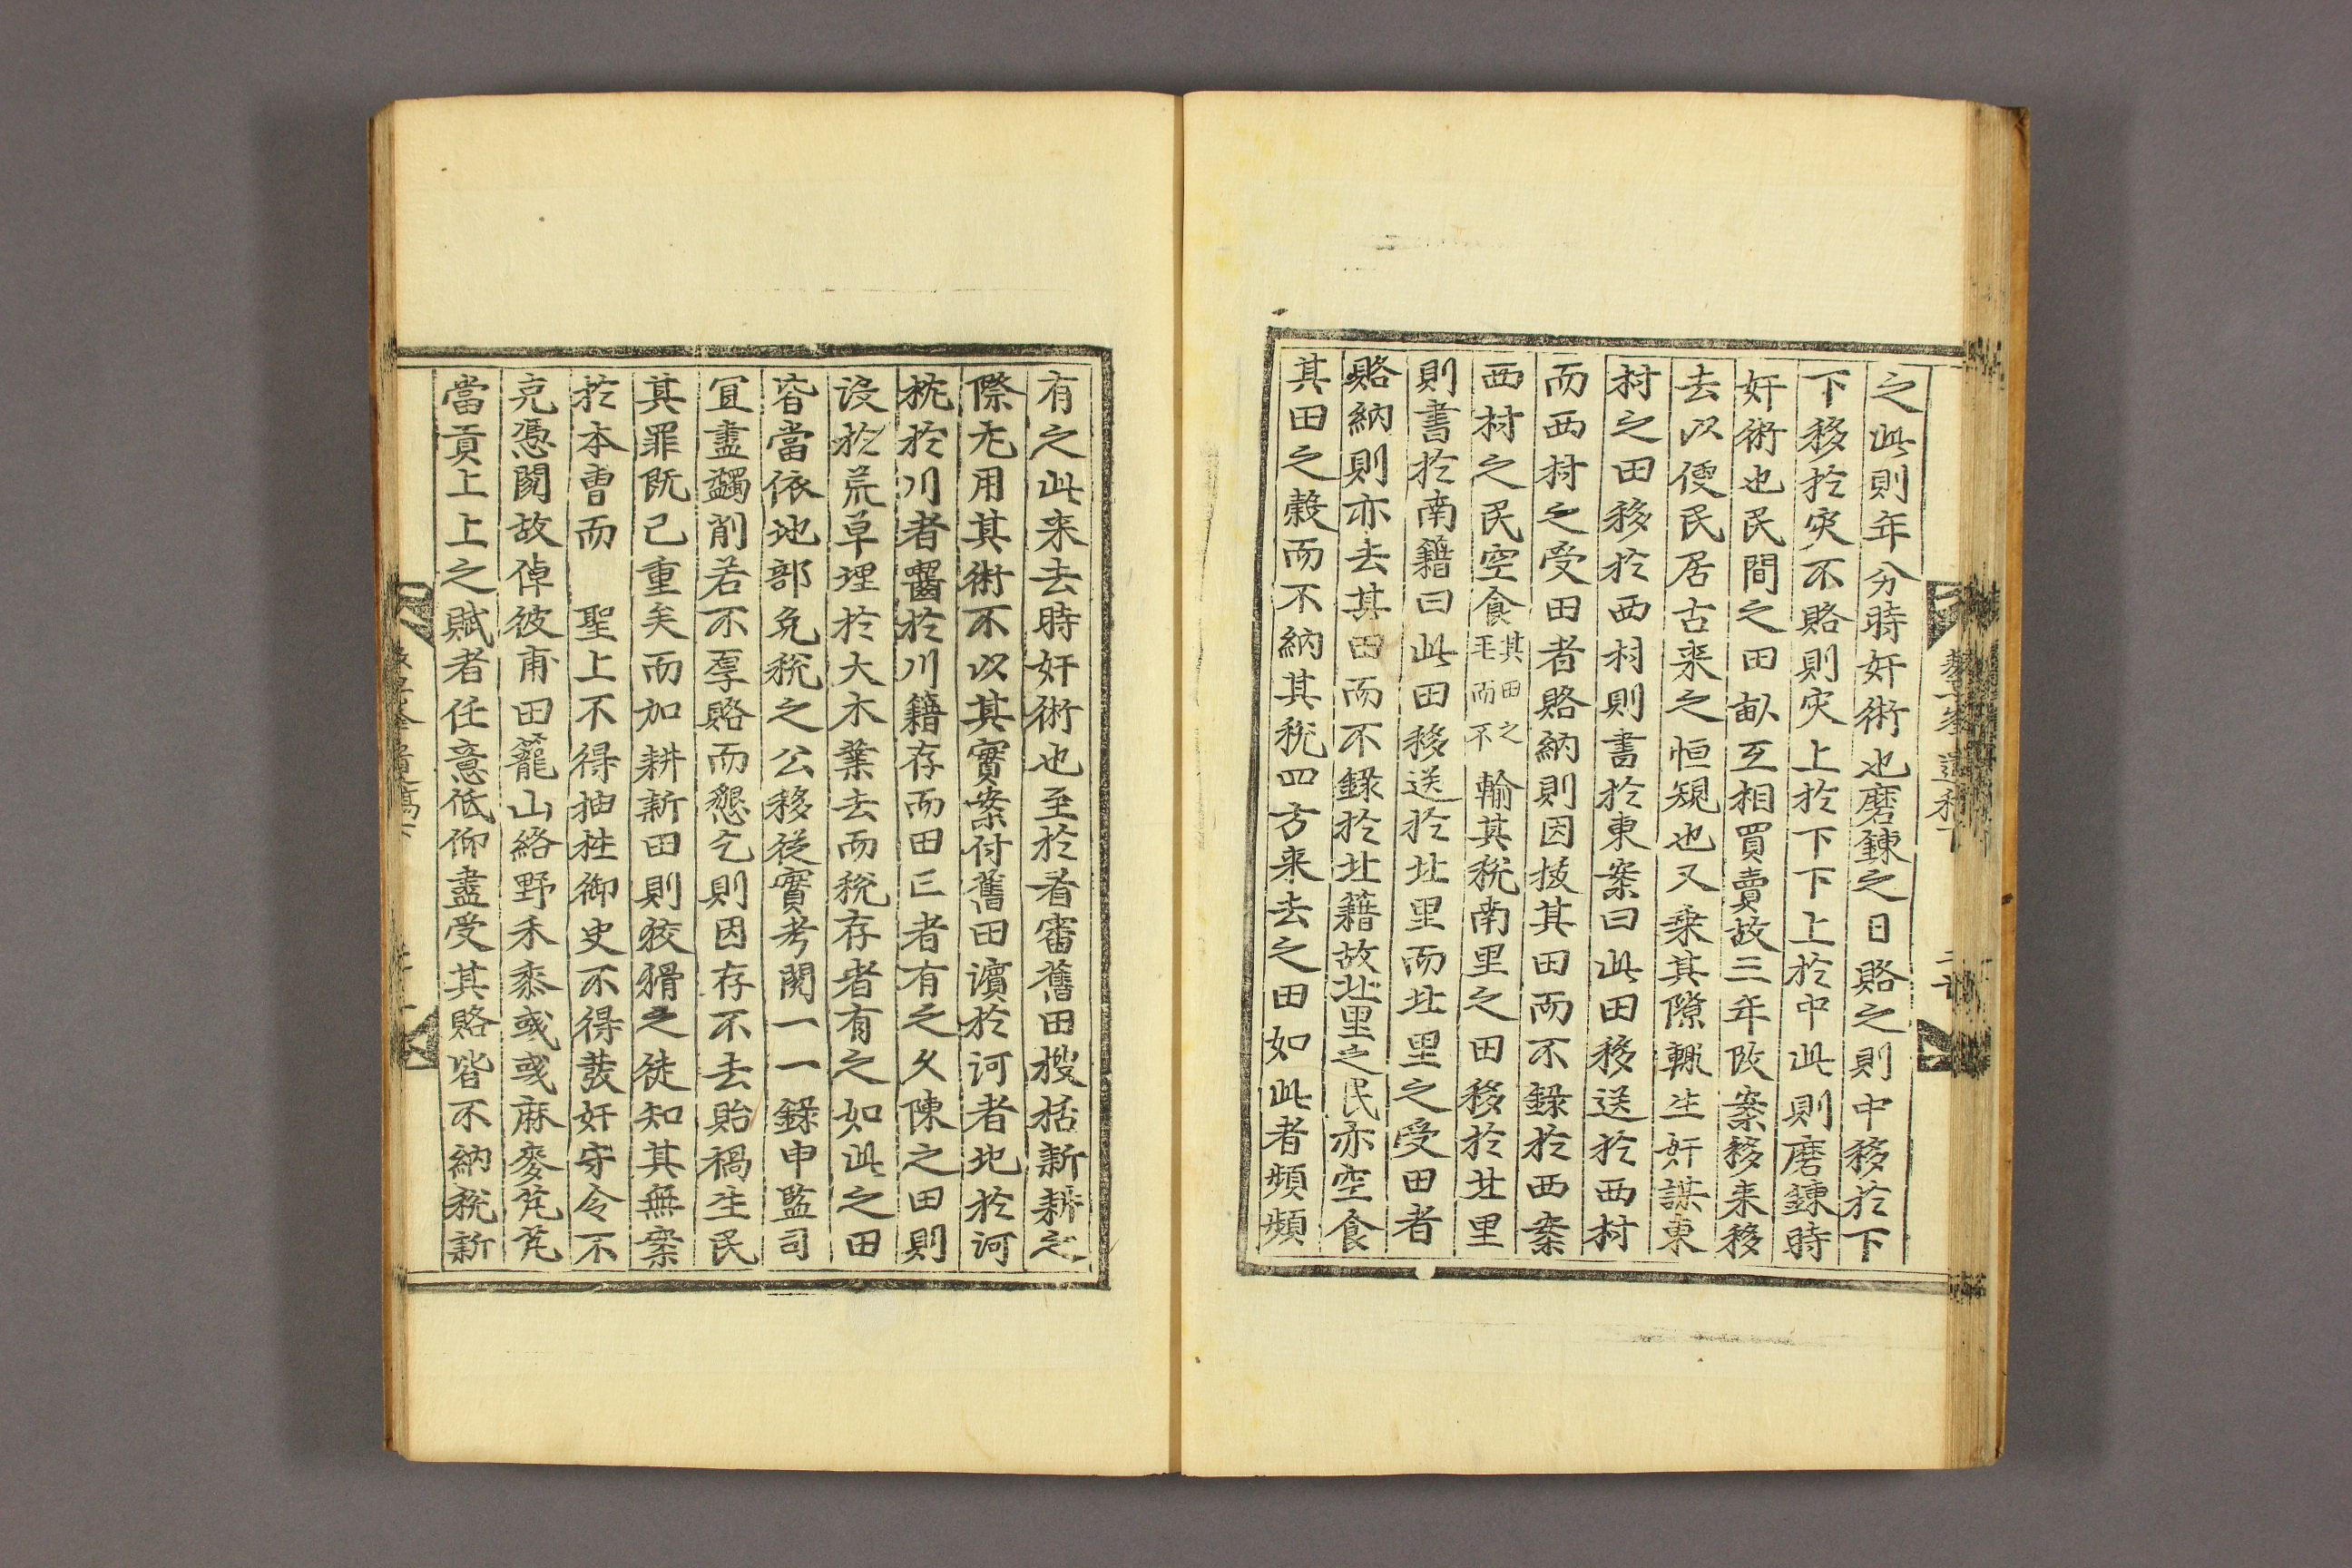 之此則年分時奸術也磨鍊之日賂之則中移於下
下移於灾不賂則灾上於下下上於中此則磨鍊時
奸術也民間之田畒互相買賣故三年改案移来移
去以便民居古来之恒規也又乗其隙輙生奸謀東
村之田移於西村則書於東案曰此田移送於西村
而西村之受田者賂納則因拔其田而不錄於西案
西村之民空食其田之毛而不輸其稅南里之田移於北里
則書於南籍曰此田移送於北里而北里之受田者
賂納則亦去其田而不錄於北籍故北里之民亦空食
其田之穀而不納其稅四方来去之田如此者頻頻
有之此来去時奸術也至於看審舊田搜括新耕之
際尤用其術不以其實案付舊田瀆於河者圮於河
枕於川者齧於川籍存而田亡者有之久陳之田則
沒於荒草埋於大木業去而稅存者有之如此之田
皆當依地部免稅之公移從實考閱一一錄申監司
冝盡蠲削若不厚賂而懇乞則因存不去貽禍生民
其罪旣已重矣而加耕新田則狡猾之徒知其無案
於本曹而 聖上不得抽栍御史不得發奸守令不
克憑閱故倬彼甫田籠山絡野禾黍彧彧麻麥芃芃
當貢上上之賦者任意低仰盡受其賂皆不納稅新